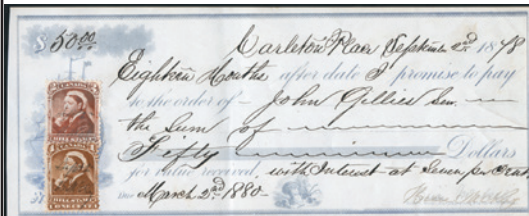 $50.00
Carleton Place September 2nd 1878
Eighteen Months after date I promise to pay
to the order of John Gillies Sen.
the Sum of
Fifty Dollars
for value received, with Interest at Seven per Cent
Due March 2nd 1880